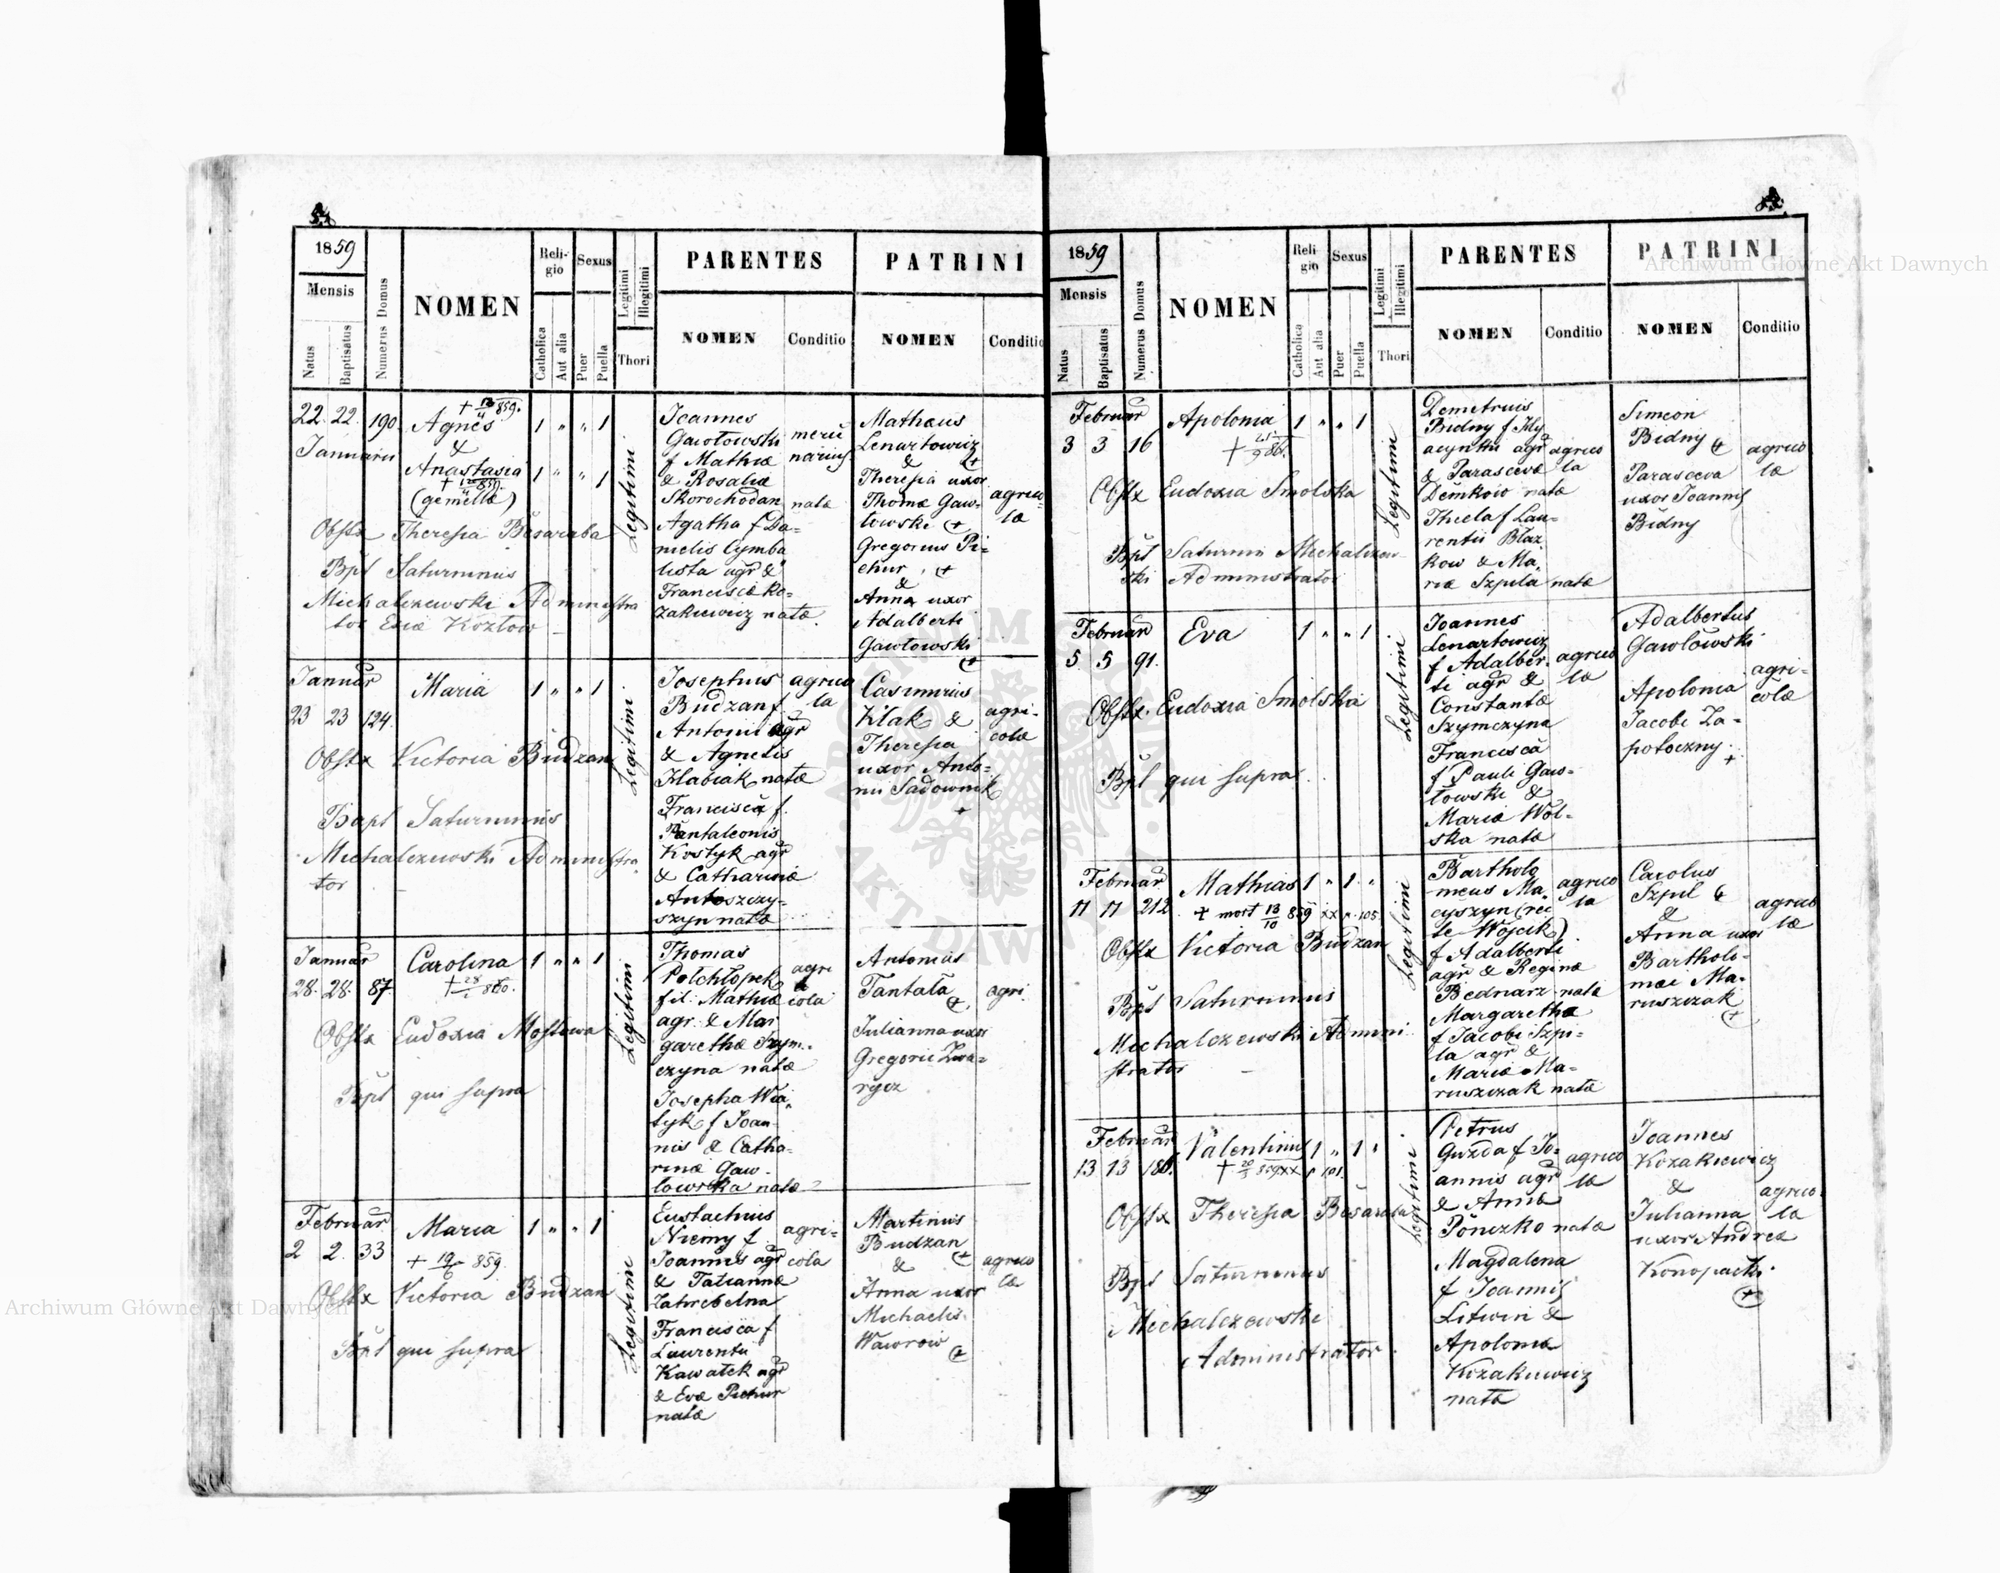 1859
Mensis
Natus
Baptisatus
Numerus Domus
NOMEN
Reli-
gio
Catholica
Aut alia
Sexus
Puer
Puella
Legitimi
Illegitimi
Thori
PARENTES
NOMEN
Conditio
PATRINI
NOMEN
Conditio
22. 22. 190.
Januarii
† 859.
Agnes
&
Anastasia
† 859.
(gemellæ)
1 „ „ 1
1 „ „ 1
Obstx Theresia Besaraba
Bpt Saturninus
Michalczewski Administra
tor Eccæ Kozłow
Legitimi
Joannes
Gawłowski
f Mathiæ
& Rosaliæ
Skorochodan nata
Agatha f Da-
nielis Cymba
lista agr &
Francisca Ko-
zakiewicz nata.
Matheus
Lenartowicz
&
Theresia uxor
Thomæ Gaw-
łowski +
Gregorius Pi-
chur, +
&
Anna uxor
Adalberti
Gawłowski
+
agrico-
læ
Januar
23 23 124.
Maria
1 „ „ 1
Obstx Victoria Budzan
Bapt Saturninus
Michalczewski Administra
tor
Legitimi
Josephus
Budzan f.
Antonii agr
& Agnetis
Hlabiak natæ
Francisca f.
Pantaleonis
Kostyk agr
& Catharinæ
Antoszczy-
szyn nata
agrico
la
Casimirus
Kłak &
Theresia
uxor Anto-
nii Sadownik
+
agri-
colæ
Januar
28. 28. 87.
Carolina
† 860.
1 „ „ 1
Obstx Eudoxia Mostowa
Bpt qui supra
Legitimi
Thomas
Potchłopek
fil. Mathiæ
agr. & Mar
garethæ Szym-
czyna natæ
Josepha Wia
tyk f Joan
nis & Catha-
rinæ Gaw-
łowska nata
agri
cola
Antonius
Tantała
+
Julianna uxor
Gregorii Zwa-
rycz
agri.
Februar
2 2. 33
Maria
† 19/6 859.
1 „ „ 1
Obstx Victoria Budzan
Bpt qui supra
Legitimi
Eustachius
Niemy f.
Joannis agr
& Tatiannæ
Zahrebelna
Francisca f
Laurentii
Kawałek agr
& Evæ Pichur
nata
agri-
cola
Martinus
Budzan
& +
Anna uxor
Michaelis
Wawrow
+
agrico
læ
1859
Mensis
Natus
Baptisatus
Numerus Domus
NOMEN
Reli
gio
Catholica
Aut alia
Sexus
Puer
Puella
Legitimi
Illegitimi
Thori
PARENTES
NOMEN
Conditio
PATRINI
NOMEN
Conditio
Februar
3 3 16
Apolonia
†
1 „ „ 1
Obstx Eudoxia Smolska
Bpt Saturnin Michalczew-
ski Administrator
Legitimi
Demetrius
Bidny f Hy
acynthi agr
& Parascevæ
Demkow natæ
Thecla f Lau-
rentii Błaz
kow & Ma-
riæ Szpila nata
agrico
la
Simeon
Bidny +
Parasceva
uxor Joannis
Bidny
agrico
læ
Februar
5 5 91.
Eva
1 „ „ 1
Obstx. Eudoxia Smolska
Bpt qui supra
Legitimi
Joannes
Lenartowicz
f Adalber-
ti agr &
Constantæ
Szymczyna
Francisca
f Pauli Gaw-
łowski &
Mariæ Wol-
ska nata
agrico
la
Adalbertus
Gawłowski
Apolonia
Jacobi Za-
potoczny.
+
agri-
colæ
Februar
11 11 212
Mathias
† mort 13/10 859 xx p. 105.
1 „ 1 „
Obstx Victoria Budzan
Bpt Saturninus
Michalczewski Admini
strator
Legitimi
Bartholo
meus Ma
cyszyn (rec
te Wojcik)
f Adalberti
agr & Reginæ
Bednarz nata
Margaretha
f Jacobi Szpi-
la agr &
Mariæ Ma-
ruszczak nata
agrico
la
Carolus
Szpil +
&
Anna uxor
Bartholo-
mæi Ma-
ruszczak
+
agrico
læ
Februar
13 13 186.
Valentinus
1 „ 1 „
Obstx Theresia Besaraba
Bpt Saturninus
Michalczewski
Administrator
Legitimi
Petrus
Guzda f Jo-
annis agr
& Annæ
Ponczko natæ
Magdalena
f Joannis
Litwin &
Apolonia
Kozakiewicz
nata
agrico
la
Joannes
Kozakiewicz
&
Julianna
uxor Andreæ
Konopacki
+
agrico.
la
Archiwum Główne Akt Dawnych
Archiwum Główne Akt Dawnych